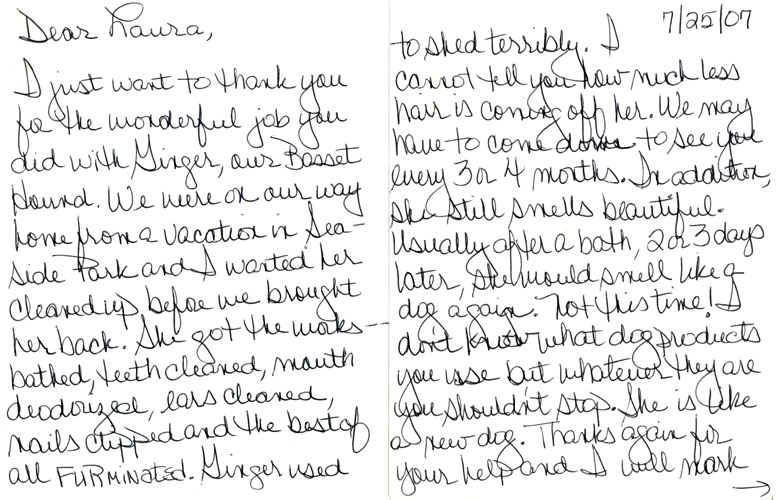 Dear Laura,
I just want to thank you
for the wonderful job you
did with Ginger, our Basset
Hound. We were on our way
home from a vacation in Sea-
side Park and I wanted her
cleaned up before we brought
her back. She got the works --
bathed, teeth cleaned, mouth
deodorized, ears cleaned,
nails clipped and the best of
all FURMINATED. Ginger used
7/25/07
to shed terribly. I
cannot tell you how much less
hair is coming off her. We may
have to come down to see you
every 3 or 4 months. In addition,
she still smells beautiful.
Usually after a bath, 2 or 3 days
later, she would smell like a
dog again. Not this time! I
don't know what dog products
you use but whatever they are
you shouldn't stop. She is like
a new dog. Thanks again for
your help and I will mark
→